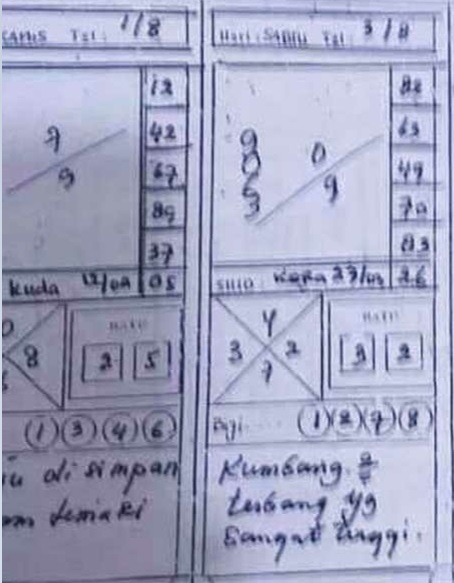 KAMIS Tgl : 1/8
12
42
67
89
37
7
9
Kuda 12/02 05
8
2 5
1 3 4 6
di simpan
Hari : SABTU Tgl : 3/8
82
63
49
70
03
9
0
6
3
0
9
SHIO : Kera 27/03 26
4
3 2
7
3 2
Biji 1 2 7 8
Kumbang 2/
terbang yg
Sangat tinggi.